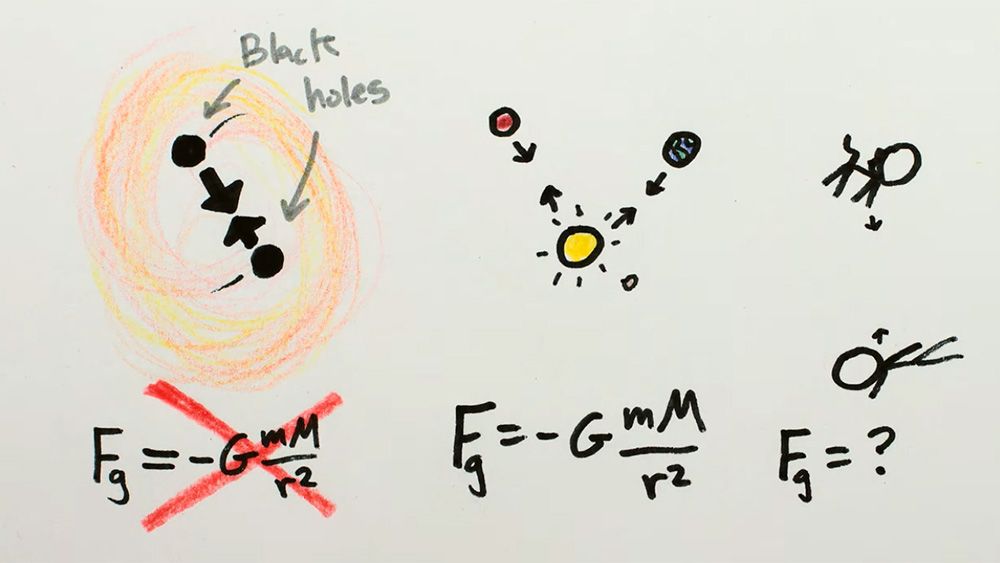 Black
holes
F_g = -G mM/r²
F_g = -G mM/r²
F_g = ?